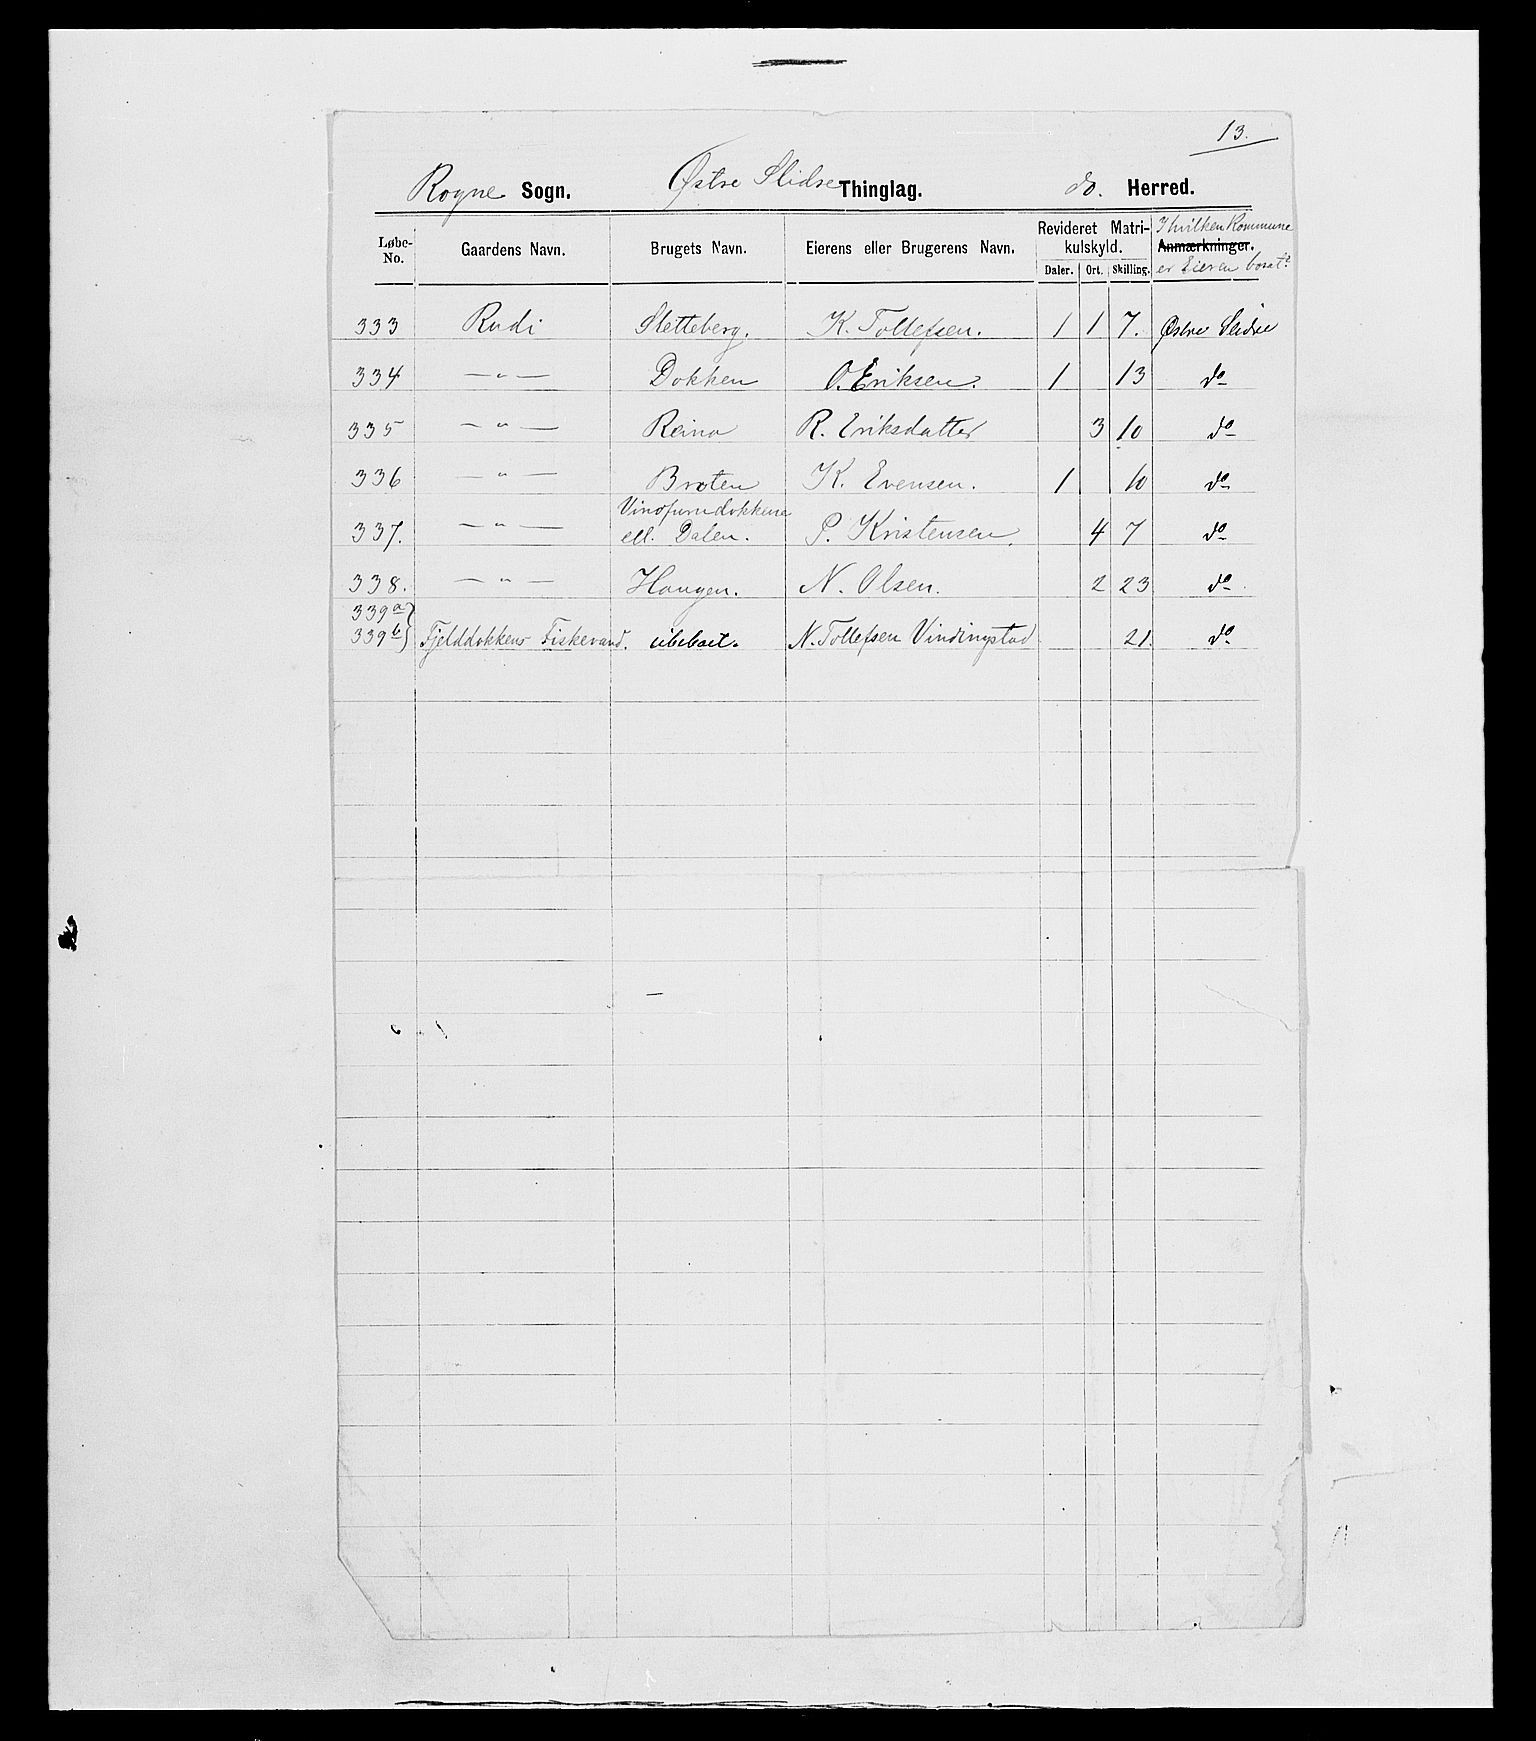 13.
Rogne Sogn. Østre Slidre Thinglag. do. Herred.
Løbe-No. Gaardens Navn. Brugets Navn. Eierens eller Brugerens Navn. Revideret Matrikulskyld. Daler. Ort. Skilling. Anmærkninger. I hvilken Kommune er Eieren bosat?
333 Rudi Sletteberg. K. Tollefsen. 1 1 7. Østre Slidre
334 — " — Dokken O. Eriksen. 1 13 do
335 — " — Reina R. Eriksdatter 3 10 do
336 — " — Broten K. Evensen. 1 10 do
337. — " — ell. Dalen. P. Kristensen. 4 7 do
338. — " — Haugen. N. Olsen. 2 23 do
339a
339b Fjelddokkens Fiskevand. ubeboet. N. Tollefsen Vindingstad 21. do